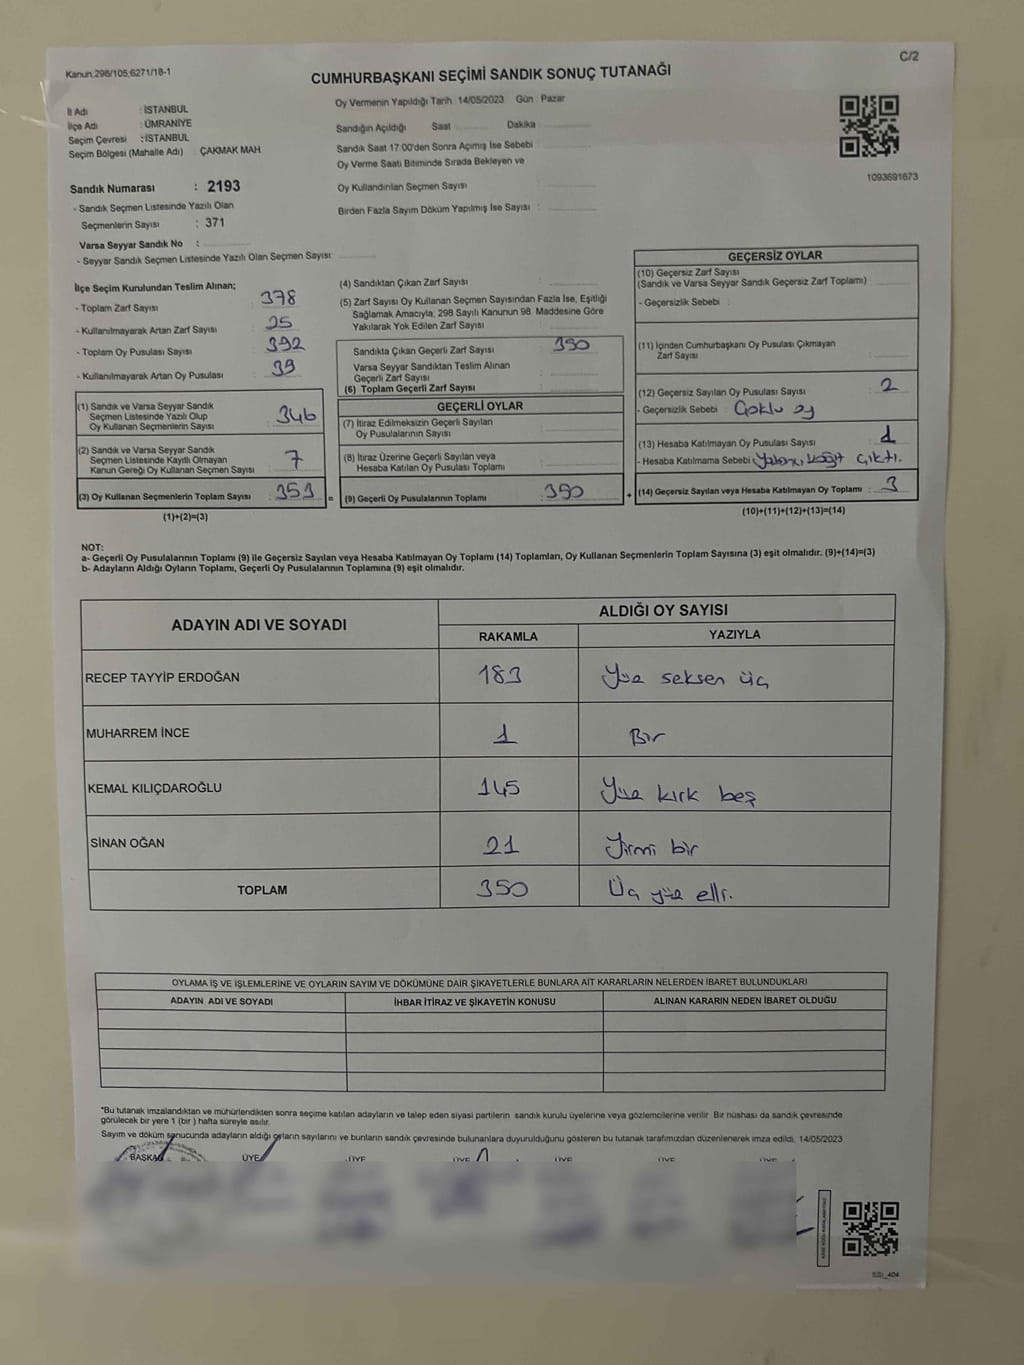 Kanun:298/105,6271/18-1
C/2
CUMHURBAŞKANI SEÇİMİ SANDIK SONUÇ TUTANAĞI
İl Adı : İSTANBUL
İlçe Adı : ÜMRANİYE
Seçim Çevresi : İSTANBUL
Seçim Bölgesi (Mahalle Adı) : ÇAKMAK MAH.
Sandık Numarası : 2193
- Sandık Seçmen Listesinde Yazılı Olan
Seçmenlerin Sayısı : 371
Varsa Seyyar Sandık No :
- Seyyar Sandık Seçmen Listesinde Yazılı Olan Seçmen Sayısı:
Oy Vermenin Yapıldığı Tarih 14/05/2023 Gün : Pazar
Sandığın Açıldığı Saat Dakika
Sandık Saat 17:00'den Sonra Açımış İse Sebebi
Oy Verme Saati Bitiminde Sırada Bekleyen ve
Oy Kullandırılan Seçmen Sayısı :
Birden Fazla Sayım Döküm Yapılmış İse Sayısı :
1093691673
İlçe Seçim Kurulundan Teslim Alınan;
- Toplam Zarf Sayısı : 378
- Kullanılmayarak Artan Zarf Sayısı : 25
- Toplam Oy Pusulası Sayısı : 392
- Kullanılmayarak Artan Oy Pusulası : 39
(1) Sandık ve Varsa Seyyar Sandık
Seçmen Listesinde Yazılı Olup
Oy Kullanan Seçmenlerin Sayısı : 346
(2) Sandık ve Varsa Seyyar Sandık
Seçmen Listesinde Kayıtlı Olmayan
Kanun Gereği Oy Kullanan Seçmen Sayısı : 7
(3) Oy Kullanan Seçmenlerin Toplam Sayısı : 353 =
(1)+(2)=(3)
(4) Sandıktan Çıkan Zarf Sayısı :
(5) Zarf Sayısı Oy Kullanan Seçmen Sayısından Fazla İse, Eşitliği
Sağlamak Amacıyla; 298 Sayılı Kanunun 98. Maddesine Göre
Yakılarak Yok Edilen Zarf Sayısı :
Sandıkta Çıkan Geçerli Zarf Sayısı : 350
Varsa Seyyar Sandıktan Teslim Alınan
Geçerli Zarf Sayısı :
(6) Toplam Geçerli Zarf Sayısı :
GEÇERLİ OYLAR
(7) İtiraz Edilmeksizin Geçerli Sayılan
Oy Pusulalarının Sayısı :
(8) İtiraz Üzerine Geçerli Sayılan veya
Hesaba Katılan Oy Pusulası Toplamı :
(9) Geçerli Oy Pusulalarının Toplamı : 350 +
GEÇERSİZ OYLAR
(10) Geçersiz Zarf Sayısı
(Sandık ve Varsa Seyyar Sandık Geçersiz Zarf Toplamı) :
- Geçersizlik Sebebi :
(11) İçinden Cumhurbaşkanı Oy Pusulası Çıkmayan
Zarf Sayısı :
(12) Geçersiz Sayılan Oy Pusulası Sayısı : 2
- Geçersizlik Sebebi : Çoklu oy
(13) Hesaba Katılmayan Oy Pusulası Sayısı : 1
- Hesaba Katılmama Sebebi : Yabancı kağıt çıktı.
(14) Geçersiz Sayılan veya Hesaba Katılmayan Oy Toplamı : 3
(10)+(11)+(12)+(13)=(14)
NOT:
a- Geçerli Oy Pusulalarının Toplamı (9) ile Geçersiz Sayılan veya Hesaba Katılmayan Oy Toplamı (14) Toplamları, Oy Kullanan Seçmenlerin Toplam Sayısına (3) eşit olmalıdır. (9)+(14)=(3)
b- Adayların Aldığı Oyların Toplamı, Geçerli Oy Pusulalarının Toplamına (9) eşit olmalıdır.
ADAYIN ADI VE SOYADI
ALDIĞI OY SAYISI
RAKAMLA YAZIYLA
RECEP TAYYİP ERDOĞAN 183 Yüz seksen üç
MUHARREM İNCE 1 Bir
KEMAL KILIÇDAROĞLU 145 Yüz kırk beş
SİNAN OĞAN 21 Yirmi bir
TOPLAM 350 Üç yüz elli.
OYLAMA İŞ VE İŞLEMLERİNE VE OYLARIN SAYIM VE DÖKÜMÜNE DAİR ŞİKAYETLERLE BUNLARA AİT KARARLARIN NELERDEN İBARET BULUNDUKLARI
ADAYIN ADI VE SOYADI İHBAR İTİRAZ VE ŞİKAYETİN KONUSU ALINAN KARARIN NEDEN İBARET OLDUĞU
*Bu tutanak imzalandıktan ve mühürlendikten sonra seçime katılan adayların ve talep eden siyasi partilerin sandık kurulu üyelerine veya gözlemcilerine verilir. Bir nüshası da sandık çevresinde
görülecek bir yere 1 (bir) hafta süreyle asılır.
Sayım ve döküm sonucunda adayların aldığı oyların sayılarını ve bunların sandık çevresinde bulunanlara duyurulduğunu gösteren bu tutanak tarafımızdan düzenlenerek imza edildi. 14/05/2023
BAŞKAN ÜYE ÜYE ÜYE ÜYE ÜYE ÜYE